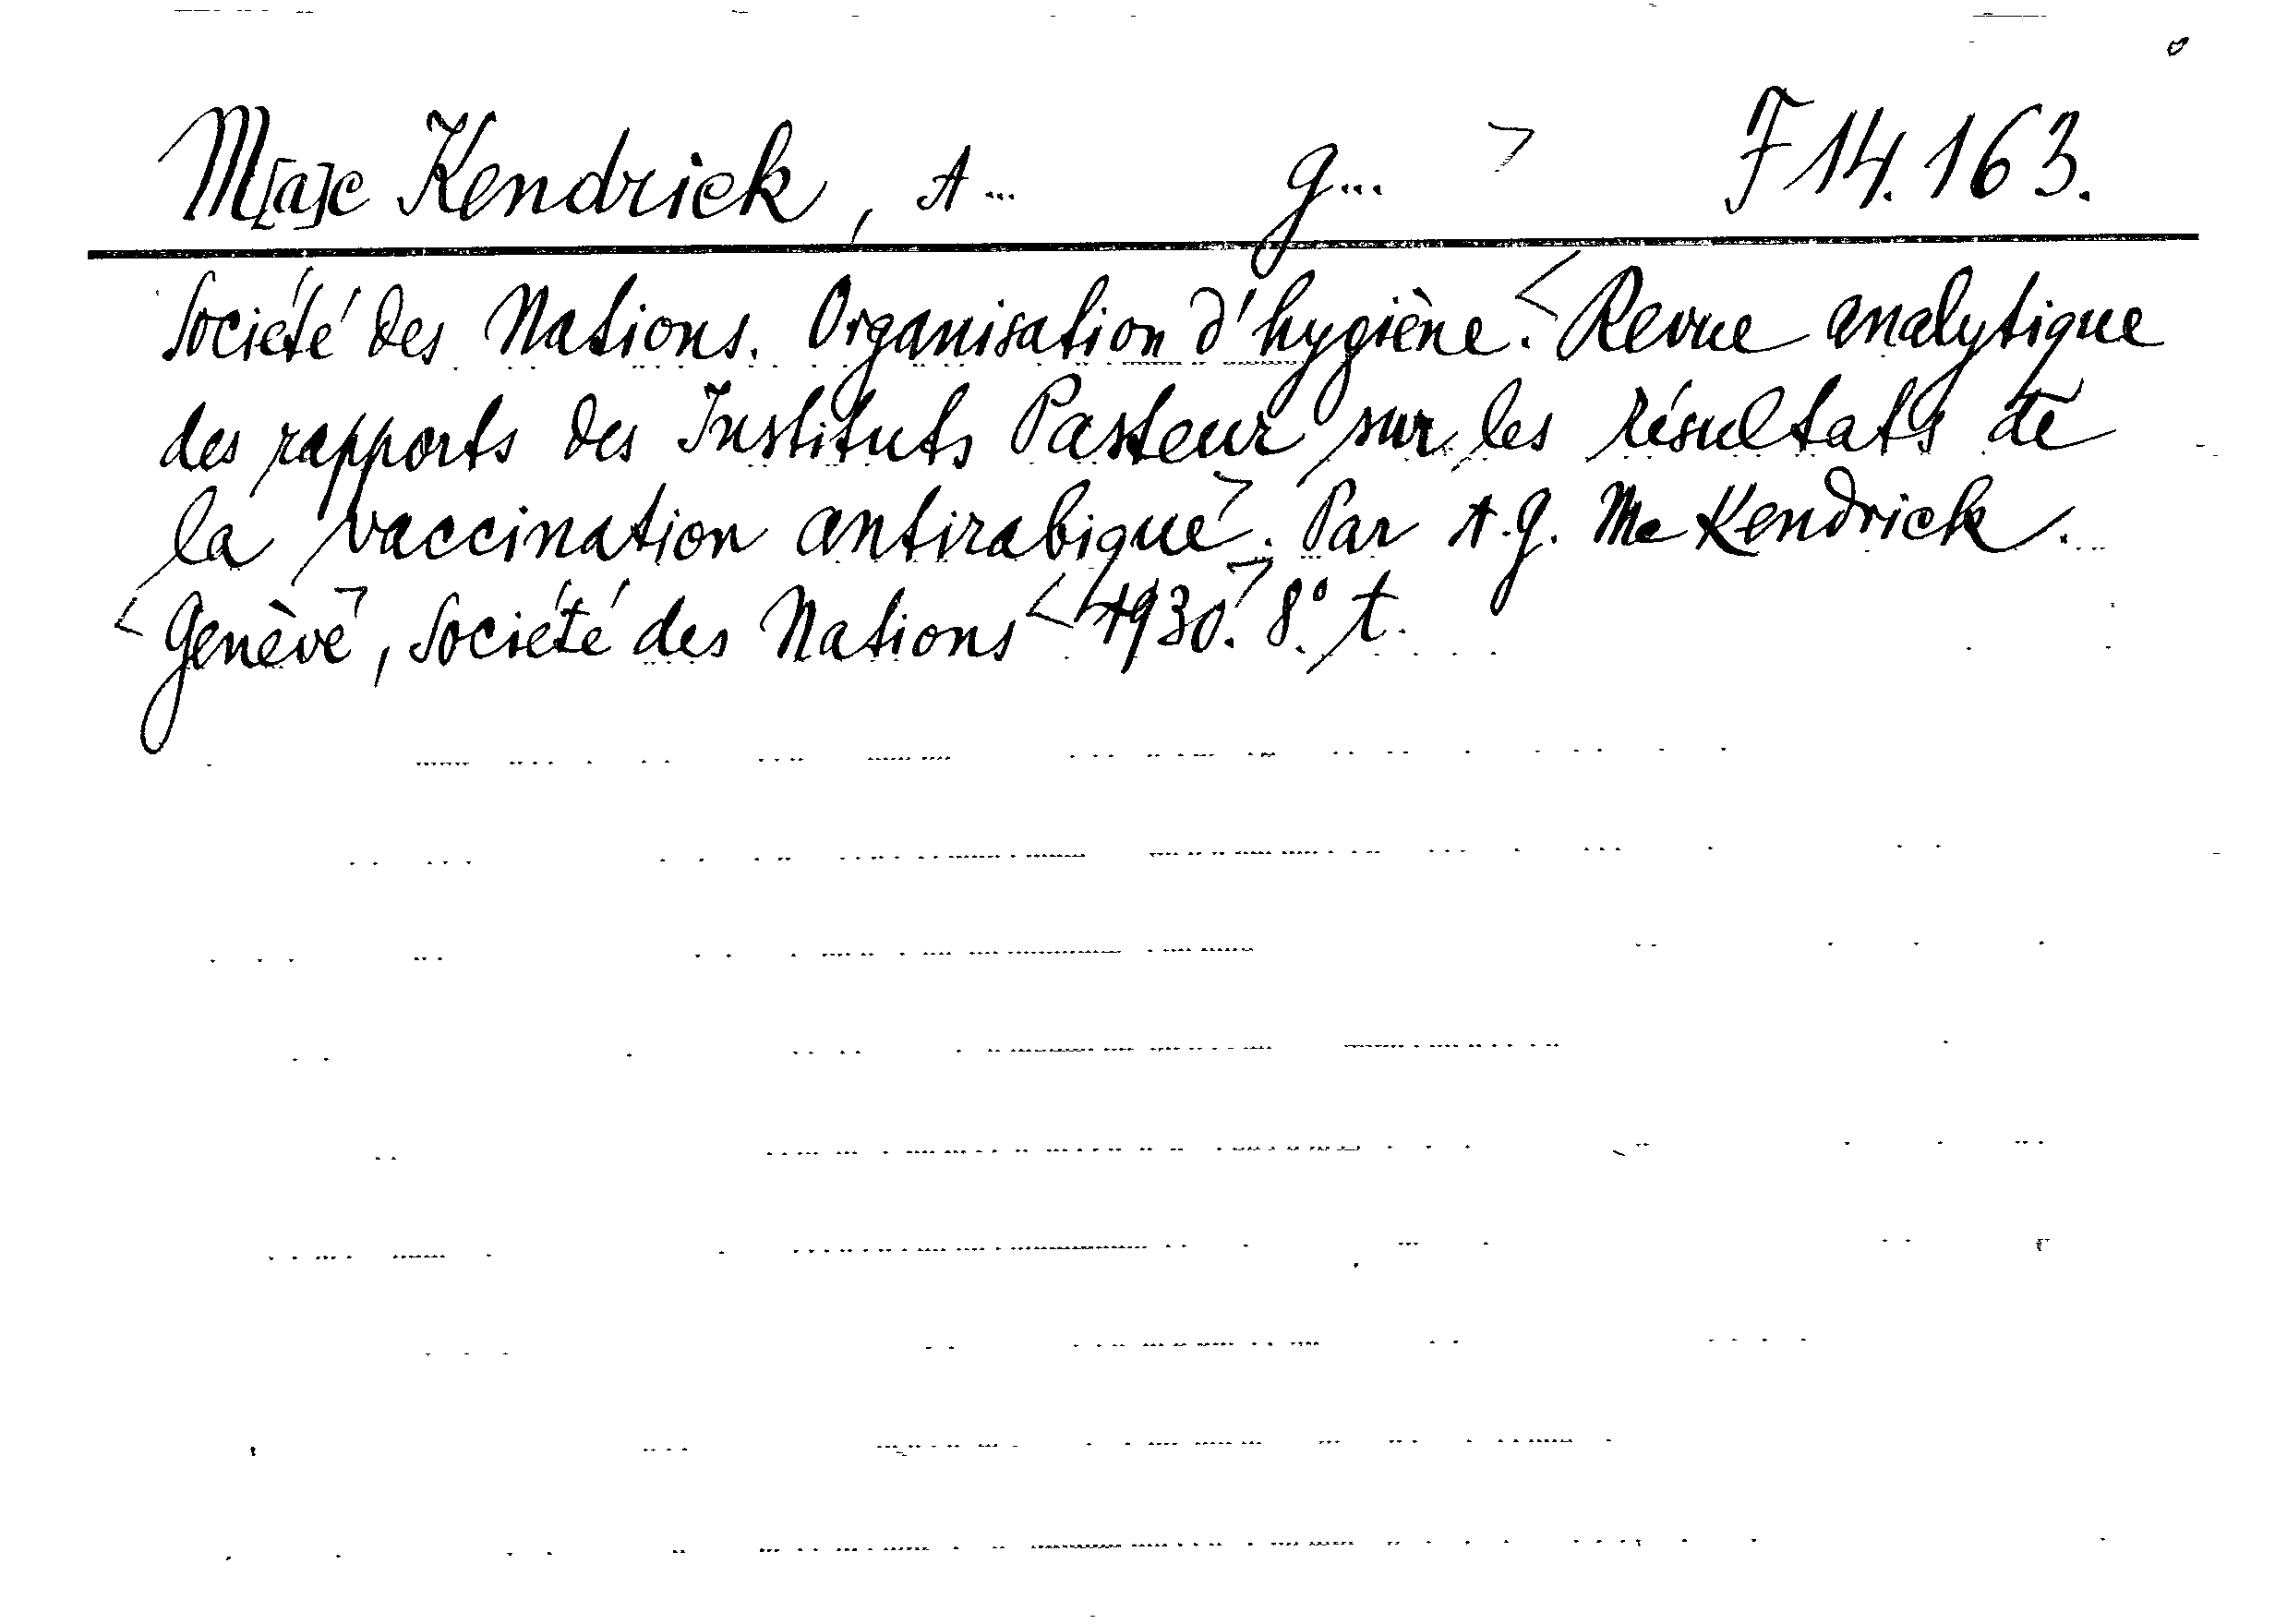 M[a]c Kendrick, A... G... > F 14.163.
Société des Nations. Organisation d'hygiène. < Revue analytique
des rapports des Instituts Pasteur sur les résultats de
la vaccination antirabique >. Par A.G. Mc Kendrick.
< Genève >, Société des Nations < 1930. > 8.° t.